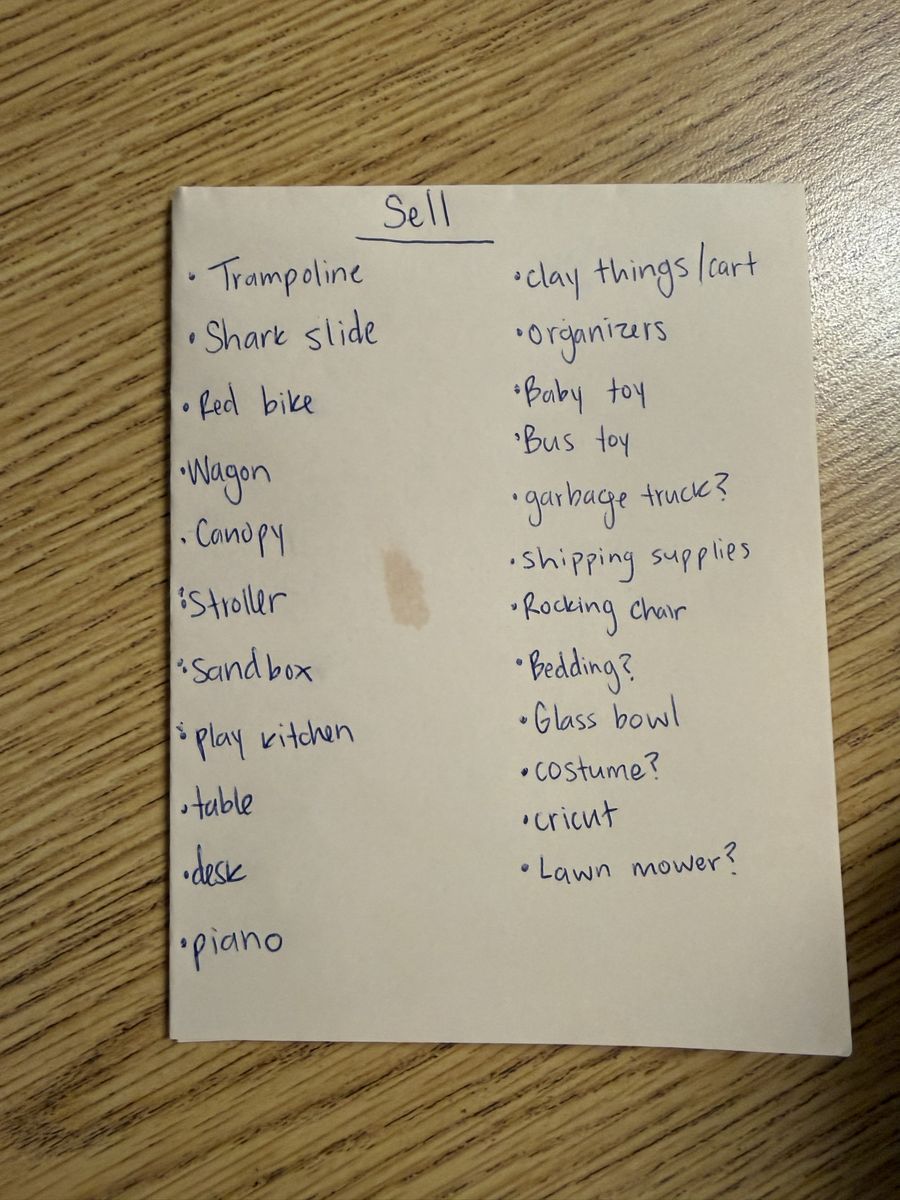 Sell
• Trampoline
• Shark slide
• Red bike
• Wagon
• Canopy
• Stroller
• Sandbox
• play kitchen
• table
• desk
• piano
• clay things/cart
• organizers
• Baby toy
• Bus toy
• garbage truck?
• shipping supplies
• Rocking chair
• Bedding?
• Glass bowl
• costume?
• cricut
• Lawn mower?